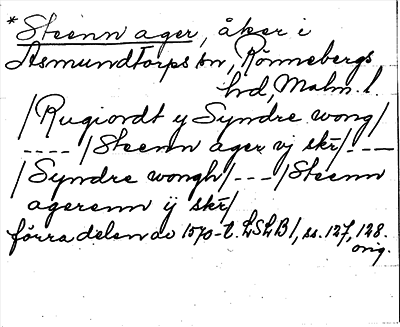 *Steenn ager, åker i
Asmundtorps sn, Rönnebergs
hd, Malm. l.
/Rugiordt y Syndre wong/
---- /Steenn ager vj skr/. ---
/Syndre wongh/ --- /Steenn
agerenn ij skr/
förra delen av 1570-t. LSLB 1, ss. 127, 128.
orig.